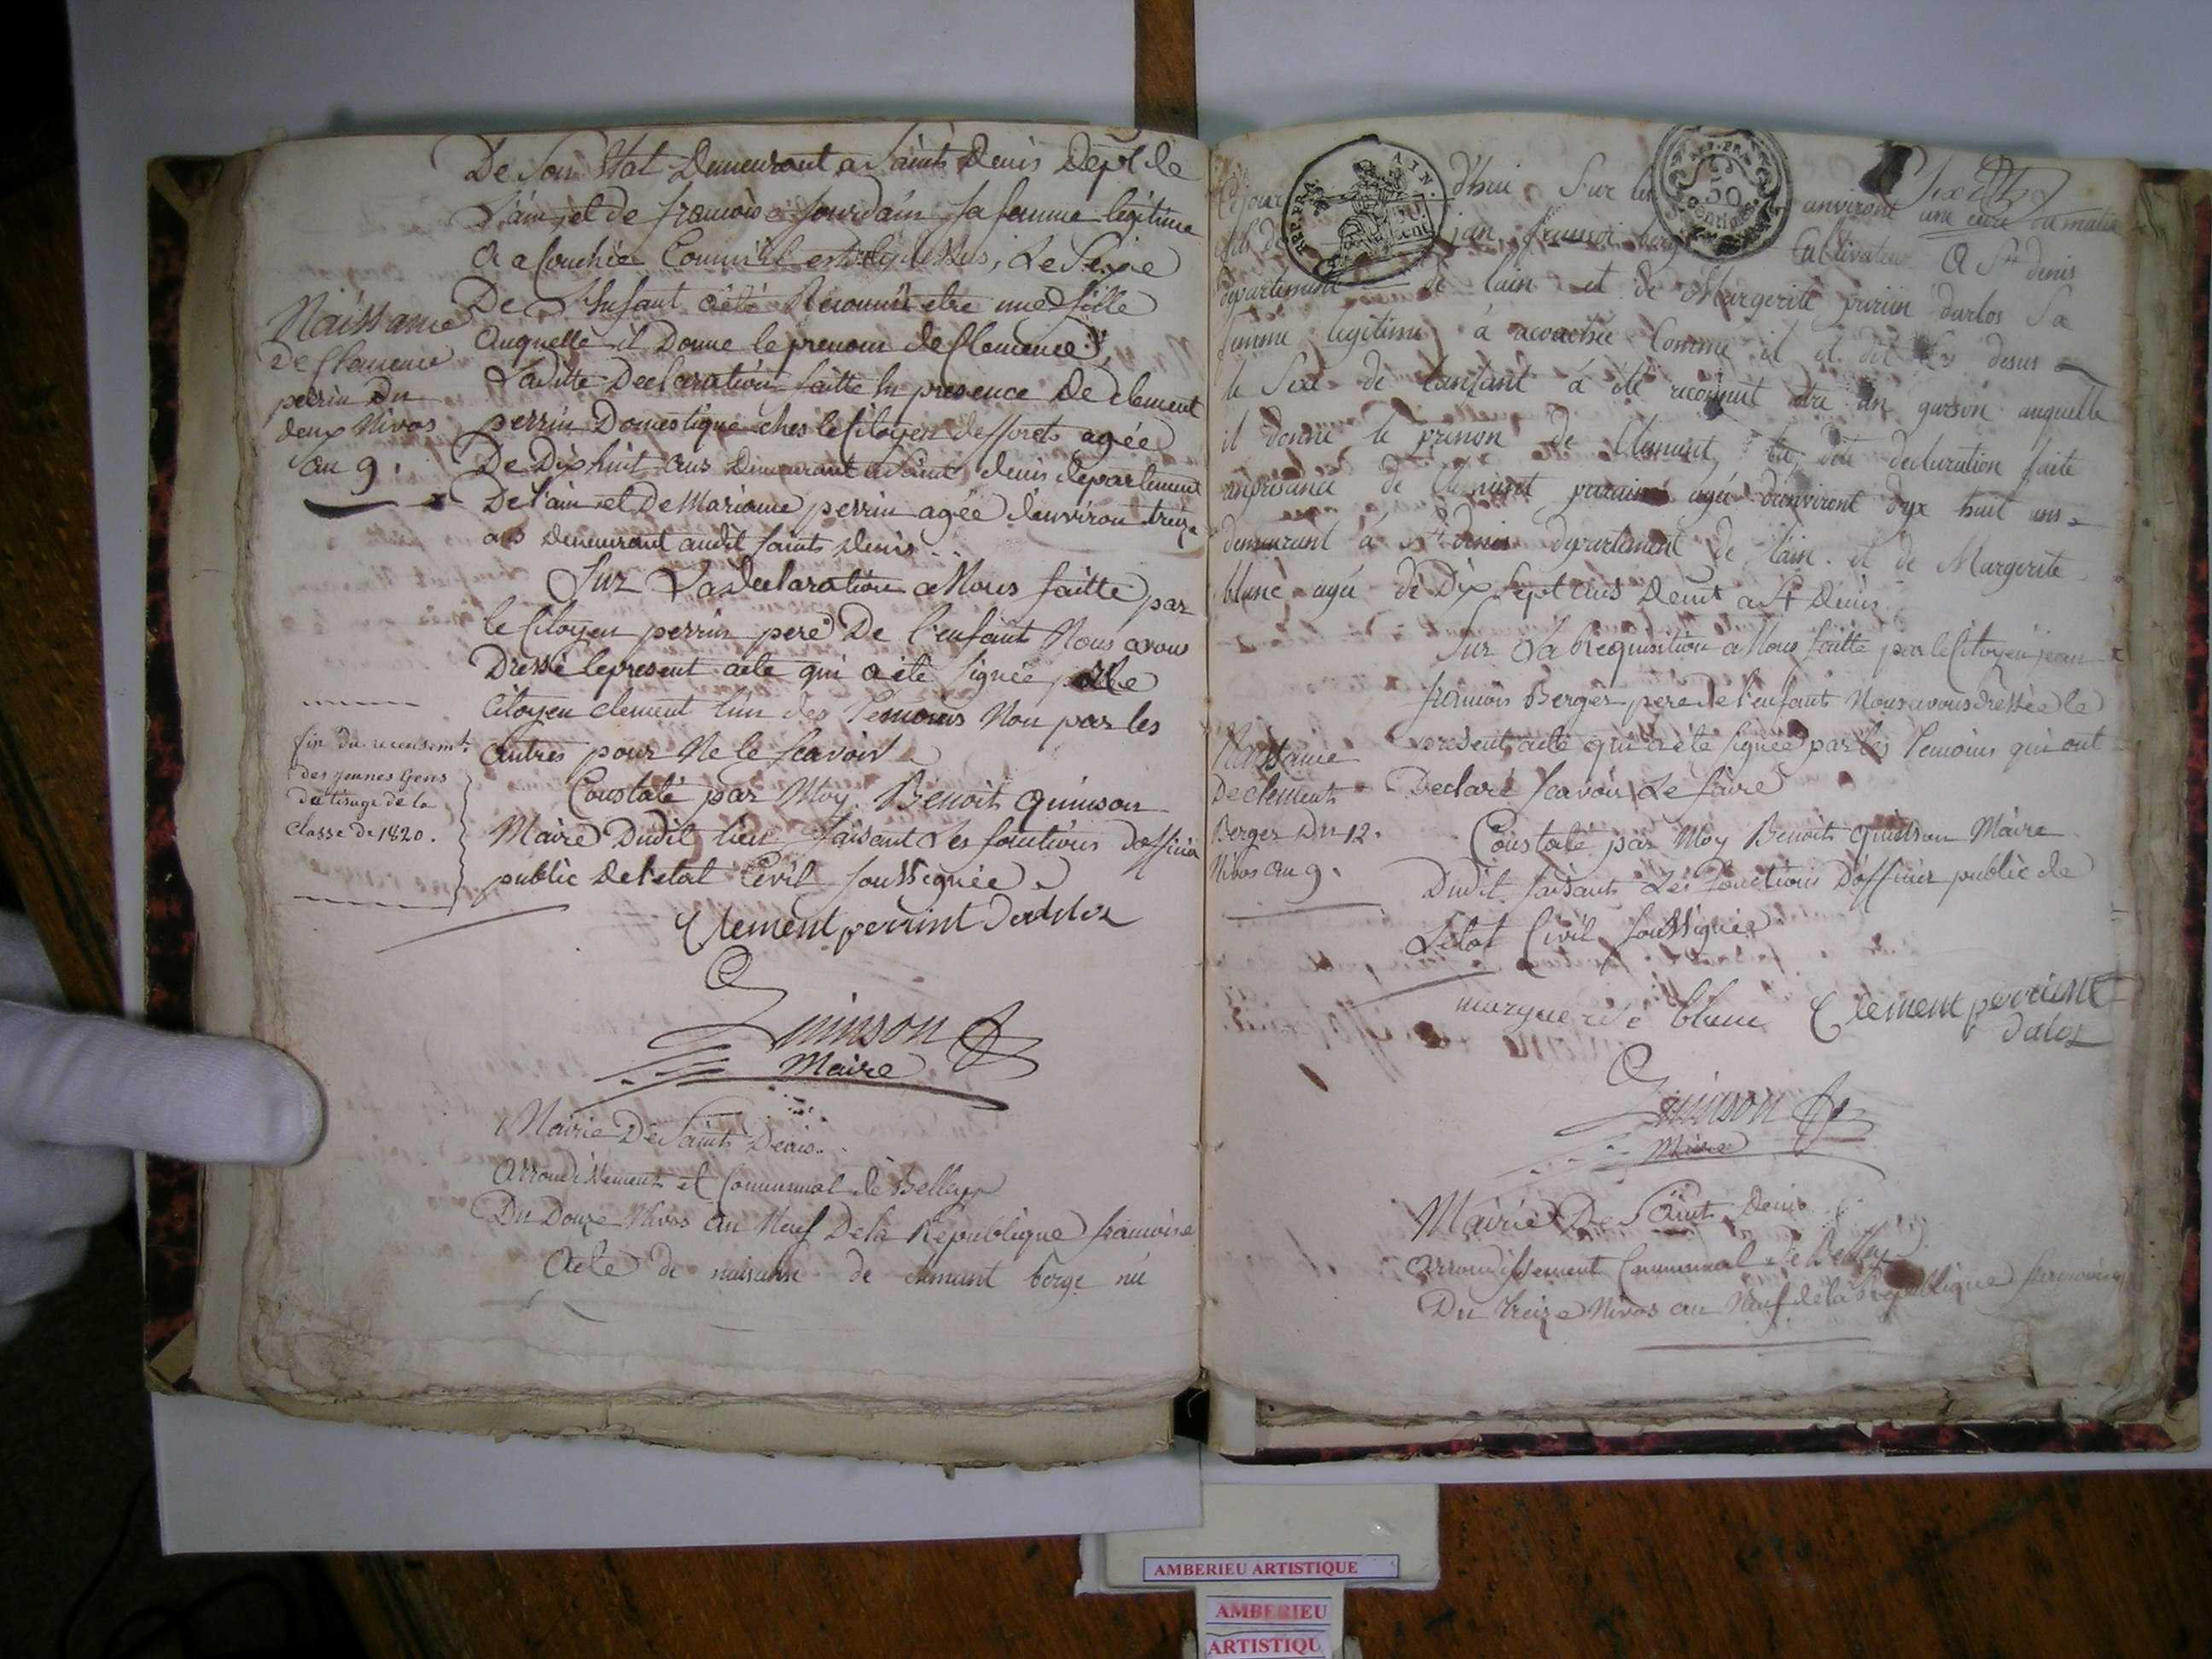 De Son Etat Demeurant a Saint Denis Dept de
L'ain, et de francoise Jourdain Sa femme legitime
a acouchée Comm'il est dy dessus, Le Sexe
De L'Enfant aété Reconnu etre une fille
Auquelle il Donne le prenom de Clemence,
Laditte Declaration faitte En presence de clement
perrin Domestique ches le Citoyen defforets agée
De Dix huit ans Demeurant a Saint denis departement
De l'ain et De Marianne perrin agée d'environ treize
ans demeurant audit Saint Denis
Naissance
de Clemence
perrin Du
deux Nivos
an 9.
Sur La declaration a Nous faitte par
le Citoyen perrin pere De l'enfant Nous avons
Dressé lepresent acte qui a été Signée par le
Citoyen clement l'un des Temoins Non par les
Autres pour Ne le Scavoir
fin du recensemt.
des jeunes Gens
du tirage de la
Classe de 1820.
Constaté par Moy Benoit Quinson
Maire Dudit lieu faisant Les fonctions d'officier
public De l'etat Civil Soussignée
Clement perrint
Quinson
Maire
Mairie De Saint Denis
Arrondissement Communal de Belley
Du Douze Nivos an Neuf De la Republique francoise
Acte de naisance de clemant berge né
REP. FRA.
AIN.
REP. FRA.
50
Centimes
Cejour d'hui Sur les anviront une eure du matin
fils de jan fransoi berge Cultivateur A St denis
departement de lain et de Margerite parain darlos Sa
femme legitime á acouchée Comme il et dit Cy desus
le Sexe de lanfant á été reconnut etre un garson auquelle
il donne le prenon de Clemant, la dite declaration faite
anpresance de Clemant parain agée danviront dyx huit ans
demeurant á St denis departement de lain. et de Margerite
blanc agée de Dix Sept ans Demt a St Denis
Sur La Requisition a Nous faitte par le Citoyen jean
francois Berger pere de l'enfant Nous avons dressée le
present acte qui a été Signée par les Temoins qui ont
Declaré Scavoir Le faire
Naissance
De clement
Berger Du 12.
Nivos an 9.
Constaté par Moy Benoit Quinson Maire
Dudit faisant Les fonctions D'officier public de
L'etat Civil Soussignée
marguerite blanc Clement perrint
Quinson
Maire
Mairie De Saint Denis
Arrondissement Communal de Belley
Du treize Nivos an Neuf de la Republique francoise
AMBERIEU ARTISTIQUE
AMBERIEU
ARTISTIQU